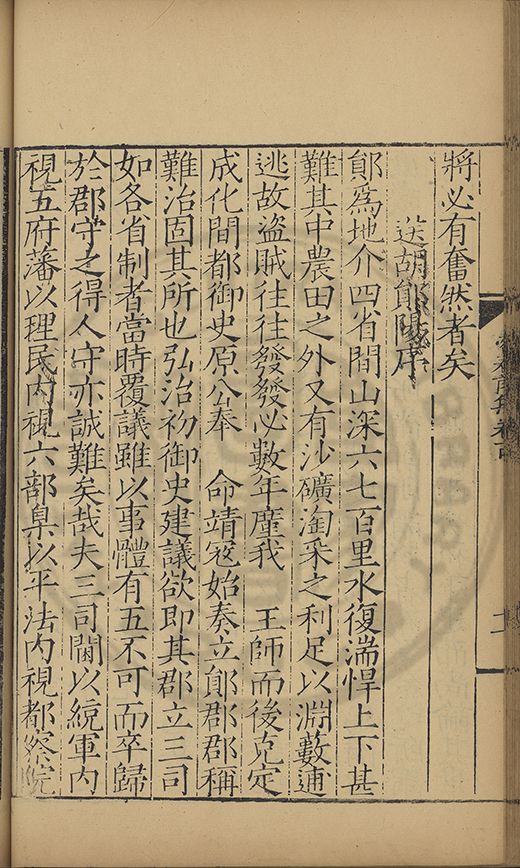 將必有奮然者矣
送胡鄖陽序
鄖為地介四省間山深六七百里水復湍悍上下甚
難其中農田之外又有沙礦淘采之利足以淵藪逋
逃故盜賊往往發發必數年廑我 王師而後克定
成化間都御史原公奉 命靖寇始奏立鄖郡郡稱
難治固其所也弘治初御史建議欲即其郡立三司
如各省制者當時覆議雖以事體有五不可而卒歸
於郡守之得人守亦誠難矣哉夫三司閫以統軍內
視五府藩以理民內視六部臬以平法內視都察院